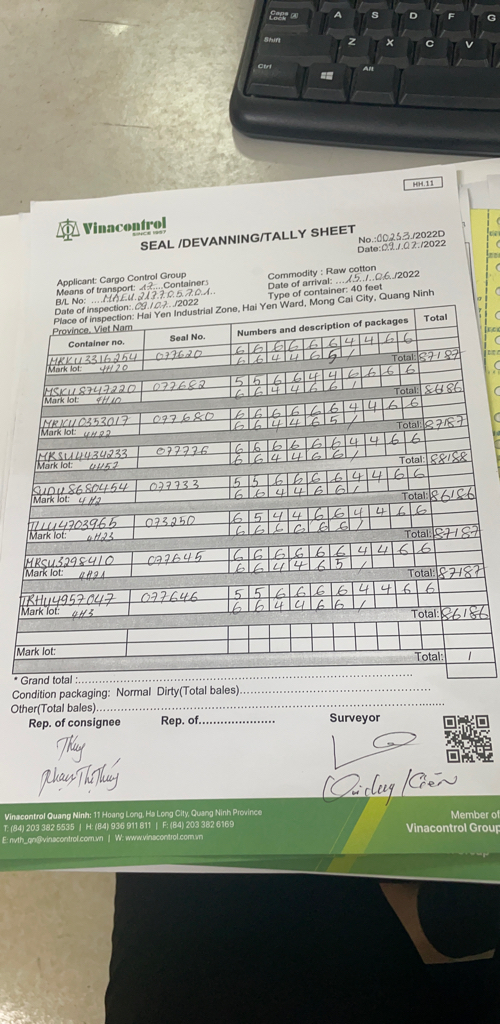 Caps Lock A S D F G
Shift Z X C V
Ctrl Alt
HH.11
Vinacontrol
SINCE 1957
SEAL /DEVANNING/TALLY SHEET
No.:00253/2022D
Date:09/07/2022
Applicant: Cargo Control Group
Commodity : Raw cotton
Means of transport: 17....Containers
Date of arrival: ...15/.06./2022
B/L No: ...MAEU.217705701..
Type of container: 40 feet
Date of inspection: 09/07./2022
Place of inspection: Hai Yen Industrial Zone, Hai Yen Ward, Mong Cai City, Quang Ninh
Province, Viet Nam
Container no. Seal No. Numbers and description of packages Total
MRKU3316254 077620 6 6 6 6 6 6 4 4 6 6
Mark lot: 4H20 6 6 4 4 6 5 / Total: 87187
MSKU8747220 077682 5 5 6 6 4 4 6 6 6 6
Mark lot: 4H10 6 6 4 4 6 6 / Total: 86186
MRKU0353017 077680 6 6 6 6 6 6 4 4 6 6
Mark lot: 4H22 6 6 4 4 6 5 / Total: 87187
MRSU4434233 077776 6 6 6 6 6 6 4 4 6 6
Mark lot: 4H52 6 6 4 4 6 6 / Total: 88188
SUDU8680454 077733 5 5 6 6 6 6 4 4 6 6
Mark lot: 4H2 6 6 4 4 6 6 / Total: 86186
TLLU4703965 073250 6 5 4 4 6 6 4 4 6 6
Mark lot: 4H23 6 6 6 6 6 6 / Total: 87187
MRSU3298410 077645 6 6 6 6 6 6 4 4 6 6
Mark lot: 4H21 6 6 4 4 6 5 / Total: 87187
TRHU4957047 077646 5 5 6 6 6 6 4 4 6 6
Mark lot: 4H3 6 6 4 4 6 6 / Total: 86186
Mark lot: Total: /
* Grand total :
Condition packaging: Normal Dirty(Total bales)
Other(Total bales)
Rep. of consignee Rep. of Surveyor
Thúy
Phạm Thị Thúy
Vinacontrol Quang Ninh: 11 Hoang Long, Ha Long City, Quang Ninh Province
T: (84) 203 382 5535 | H: (84) 936 911 811 | F: (84) 203 382 6169
E: nvth_qn@vinacontrol.com.vn | W: www.vinacontrol.com.vn
Member of
Vinacontrol Group